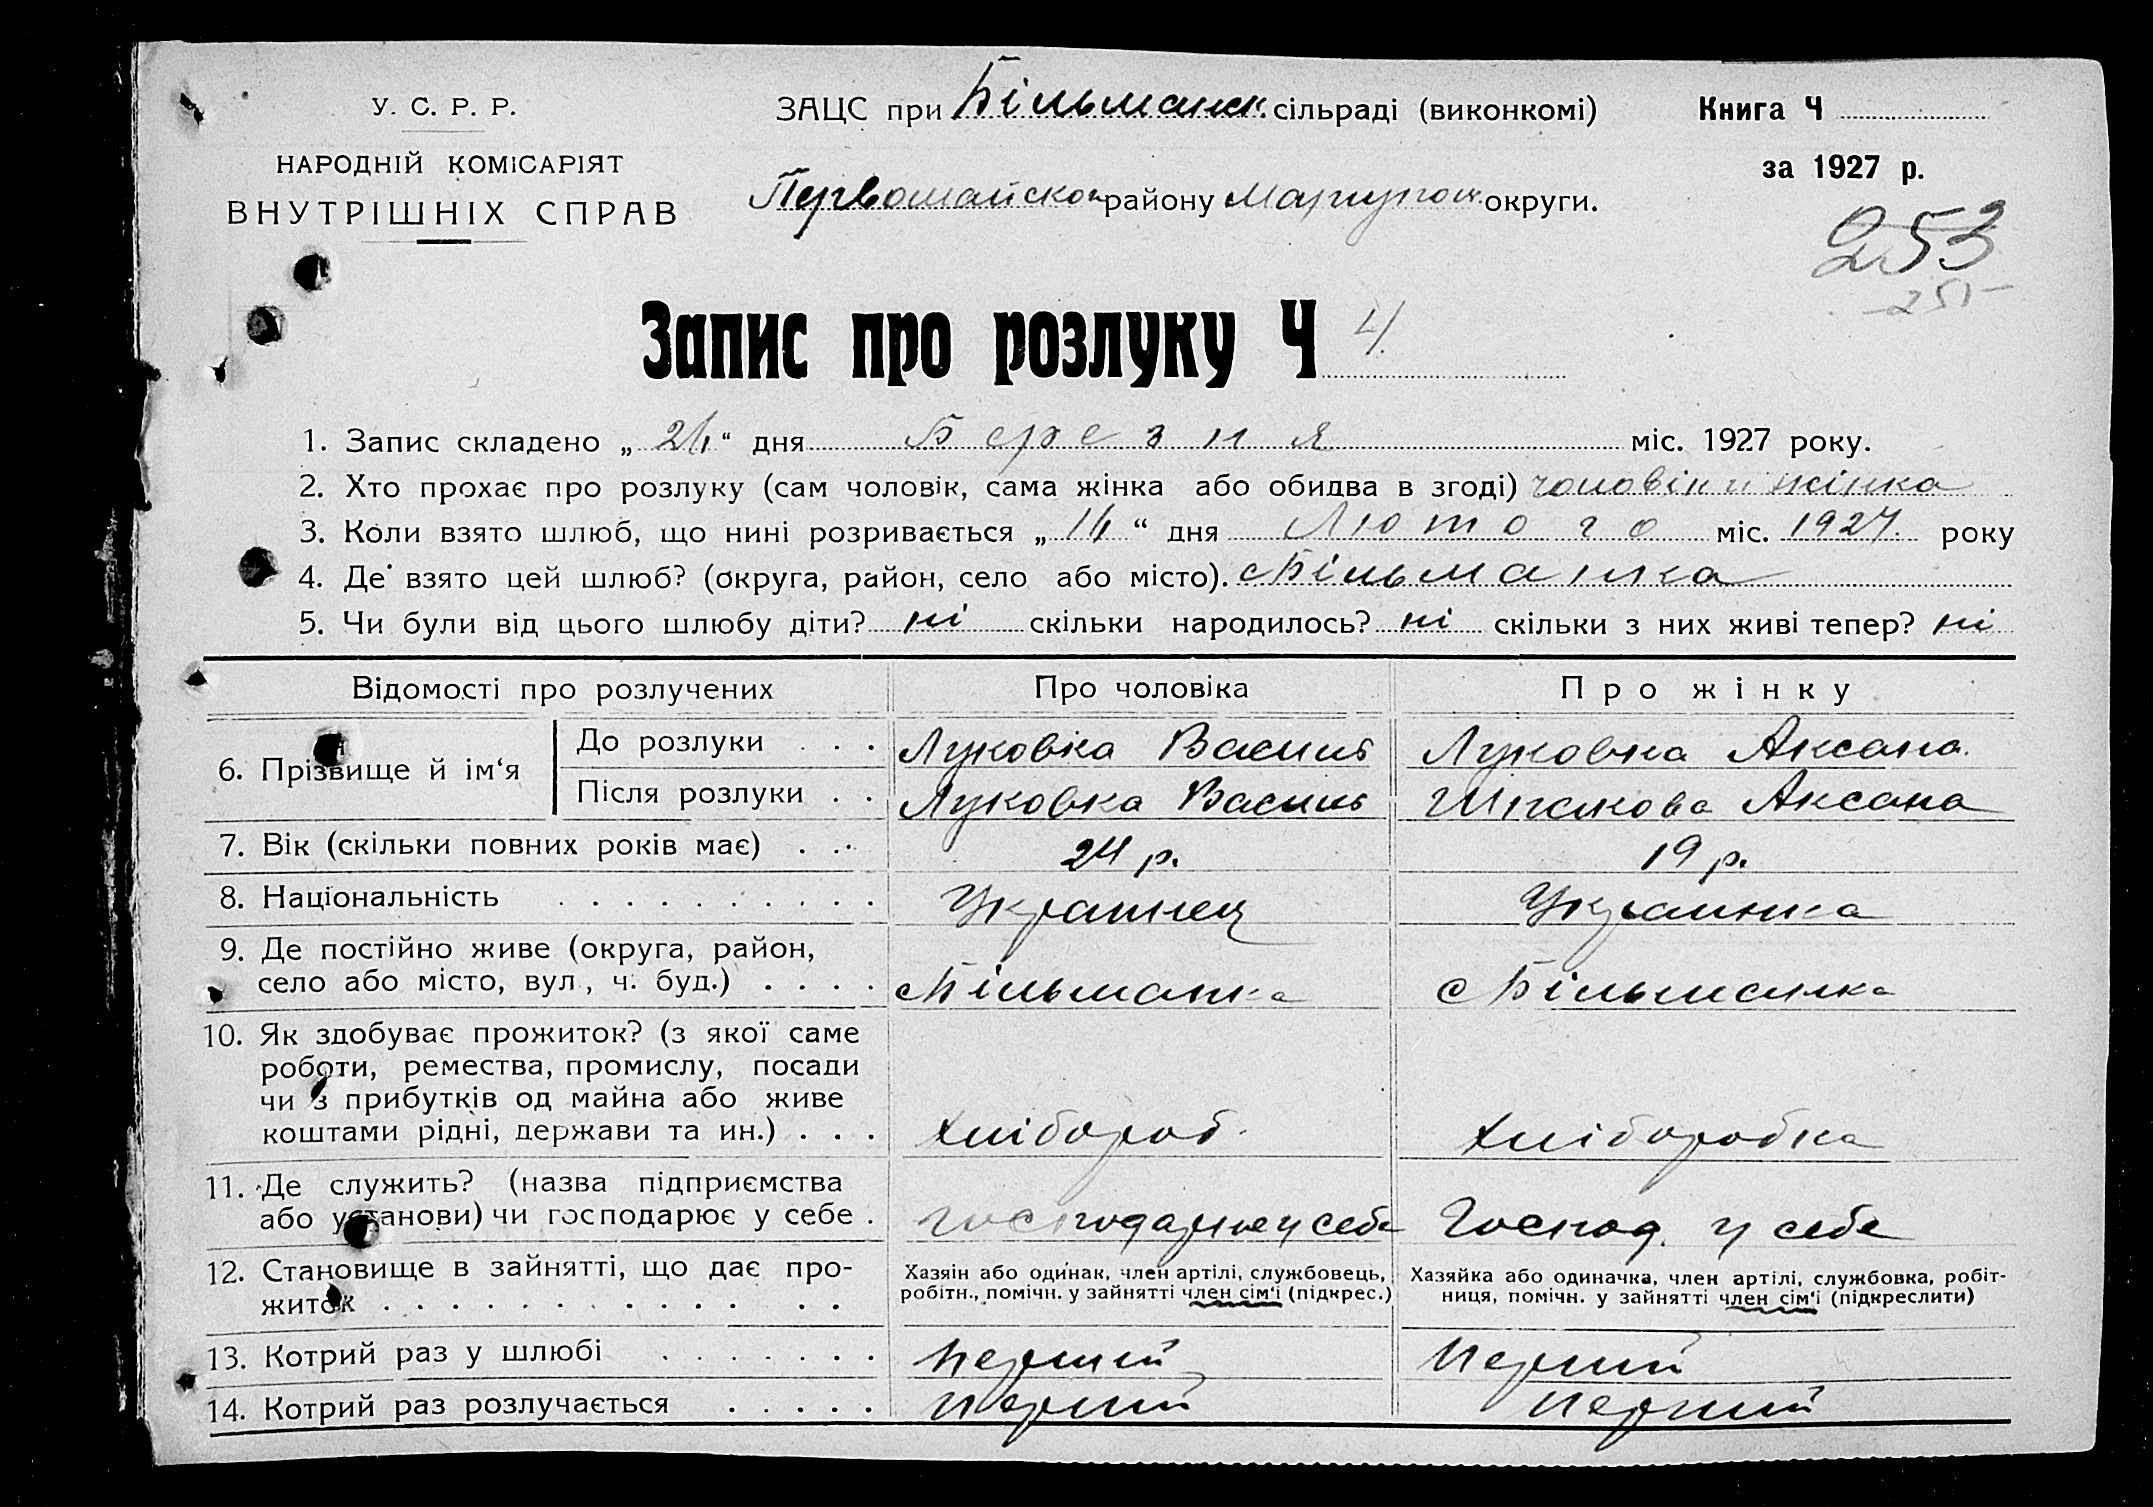 У. С. Р. Р.
НАРОДНІЙ КОМІСАРІЯТ
ВНУТРІШНІХ СПРАВ
ЗАЦС при Більманск. сільраді (виконкомі)
Первомайског району Мариупол. округи.
Книга Ч
за 1927 р.
253
251
Запис про розлуку Ч 4.
1. Запис складено „ 24 “ дня Березня міс. 1927 року.
2. Хто прохає про розлуку (сам чоловік, сама жінка або обидва в згоді) чоловік и жінка
3. Коли взято шлюб, що нині розривається „ 14 “ дня Лютого міс. 1927. року
4. Де взято цей шлюб? (округа, район, село або місто). с Більманка
5. Чи були від цього шлюбу діти? ні скільки народилось? ні скільки з них живі тепер? ні
Відомості про розлучених Про чоловіка Про жінку
6. Прізвище й ім‘я
До розлуки . . . Луковка Василь Луковка Аксана
Після розлуки . . Луковка Василь Шпакова Аксана
7. Вік (скільки повних років має) . . . 24 р. 19 р.
8. Національність . . . . . . . . . . Украинец Украинка
9. Де постійно живе (округа, район,
село або місто, вул., ч. буд.) . . . . с Більманка с Більманка
10. Як здобуває прожиток? (з якої саме
роботи, ремества, промислу, посади
чи з прибутків од майна або живе
коштами рідні, держави та ин.) . . . Хлібороб. Хліборобка
11. Де служить? (назва підприємства
або установи) чи господарює у себе . господарює у себе Господ. у себе
12. Становище в зайнятті, що дає про-
житок . . . . . . . . . . . . .
Хазяін або одинак, член артілі, службовець,
робітн., помічн. у зайнятті член сім‘ї (підкрес.)
Хазяйка або одиначка, член артілі, службовка, робіт-
ниця, помічн. у зайнятті член сім‘ї (підкреслити)
13. Котрий раз у шлюбі . . . . . . . Перший Перший
14. Котрий раз розлучається . . . . . Перший Перший